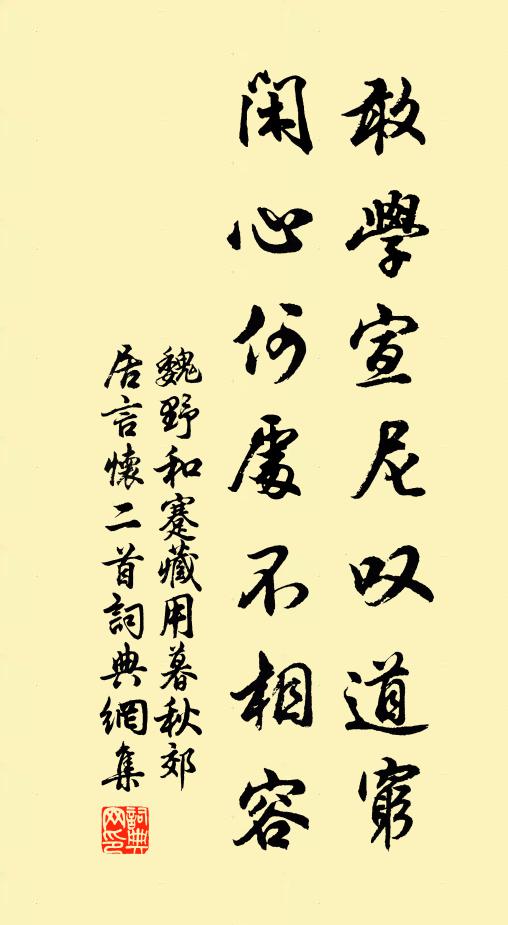 敢學宣尼叹道窮
闲心何處不相容
魏野和蹇藏用暮秋郊
居言懷二首詞典網集
詞典網印